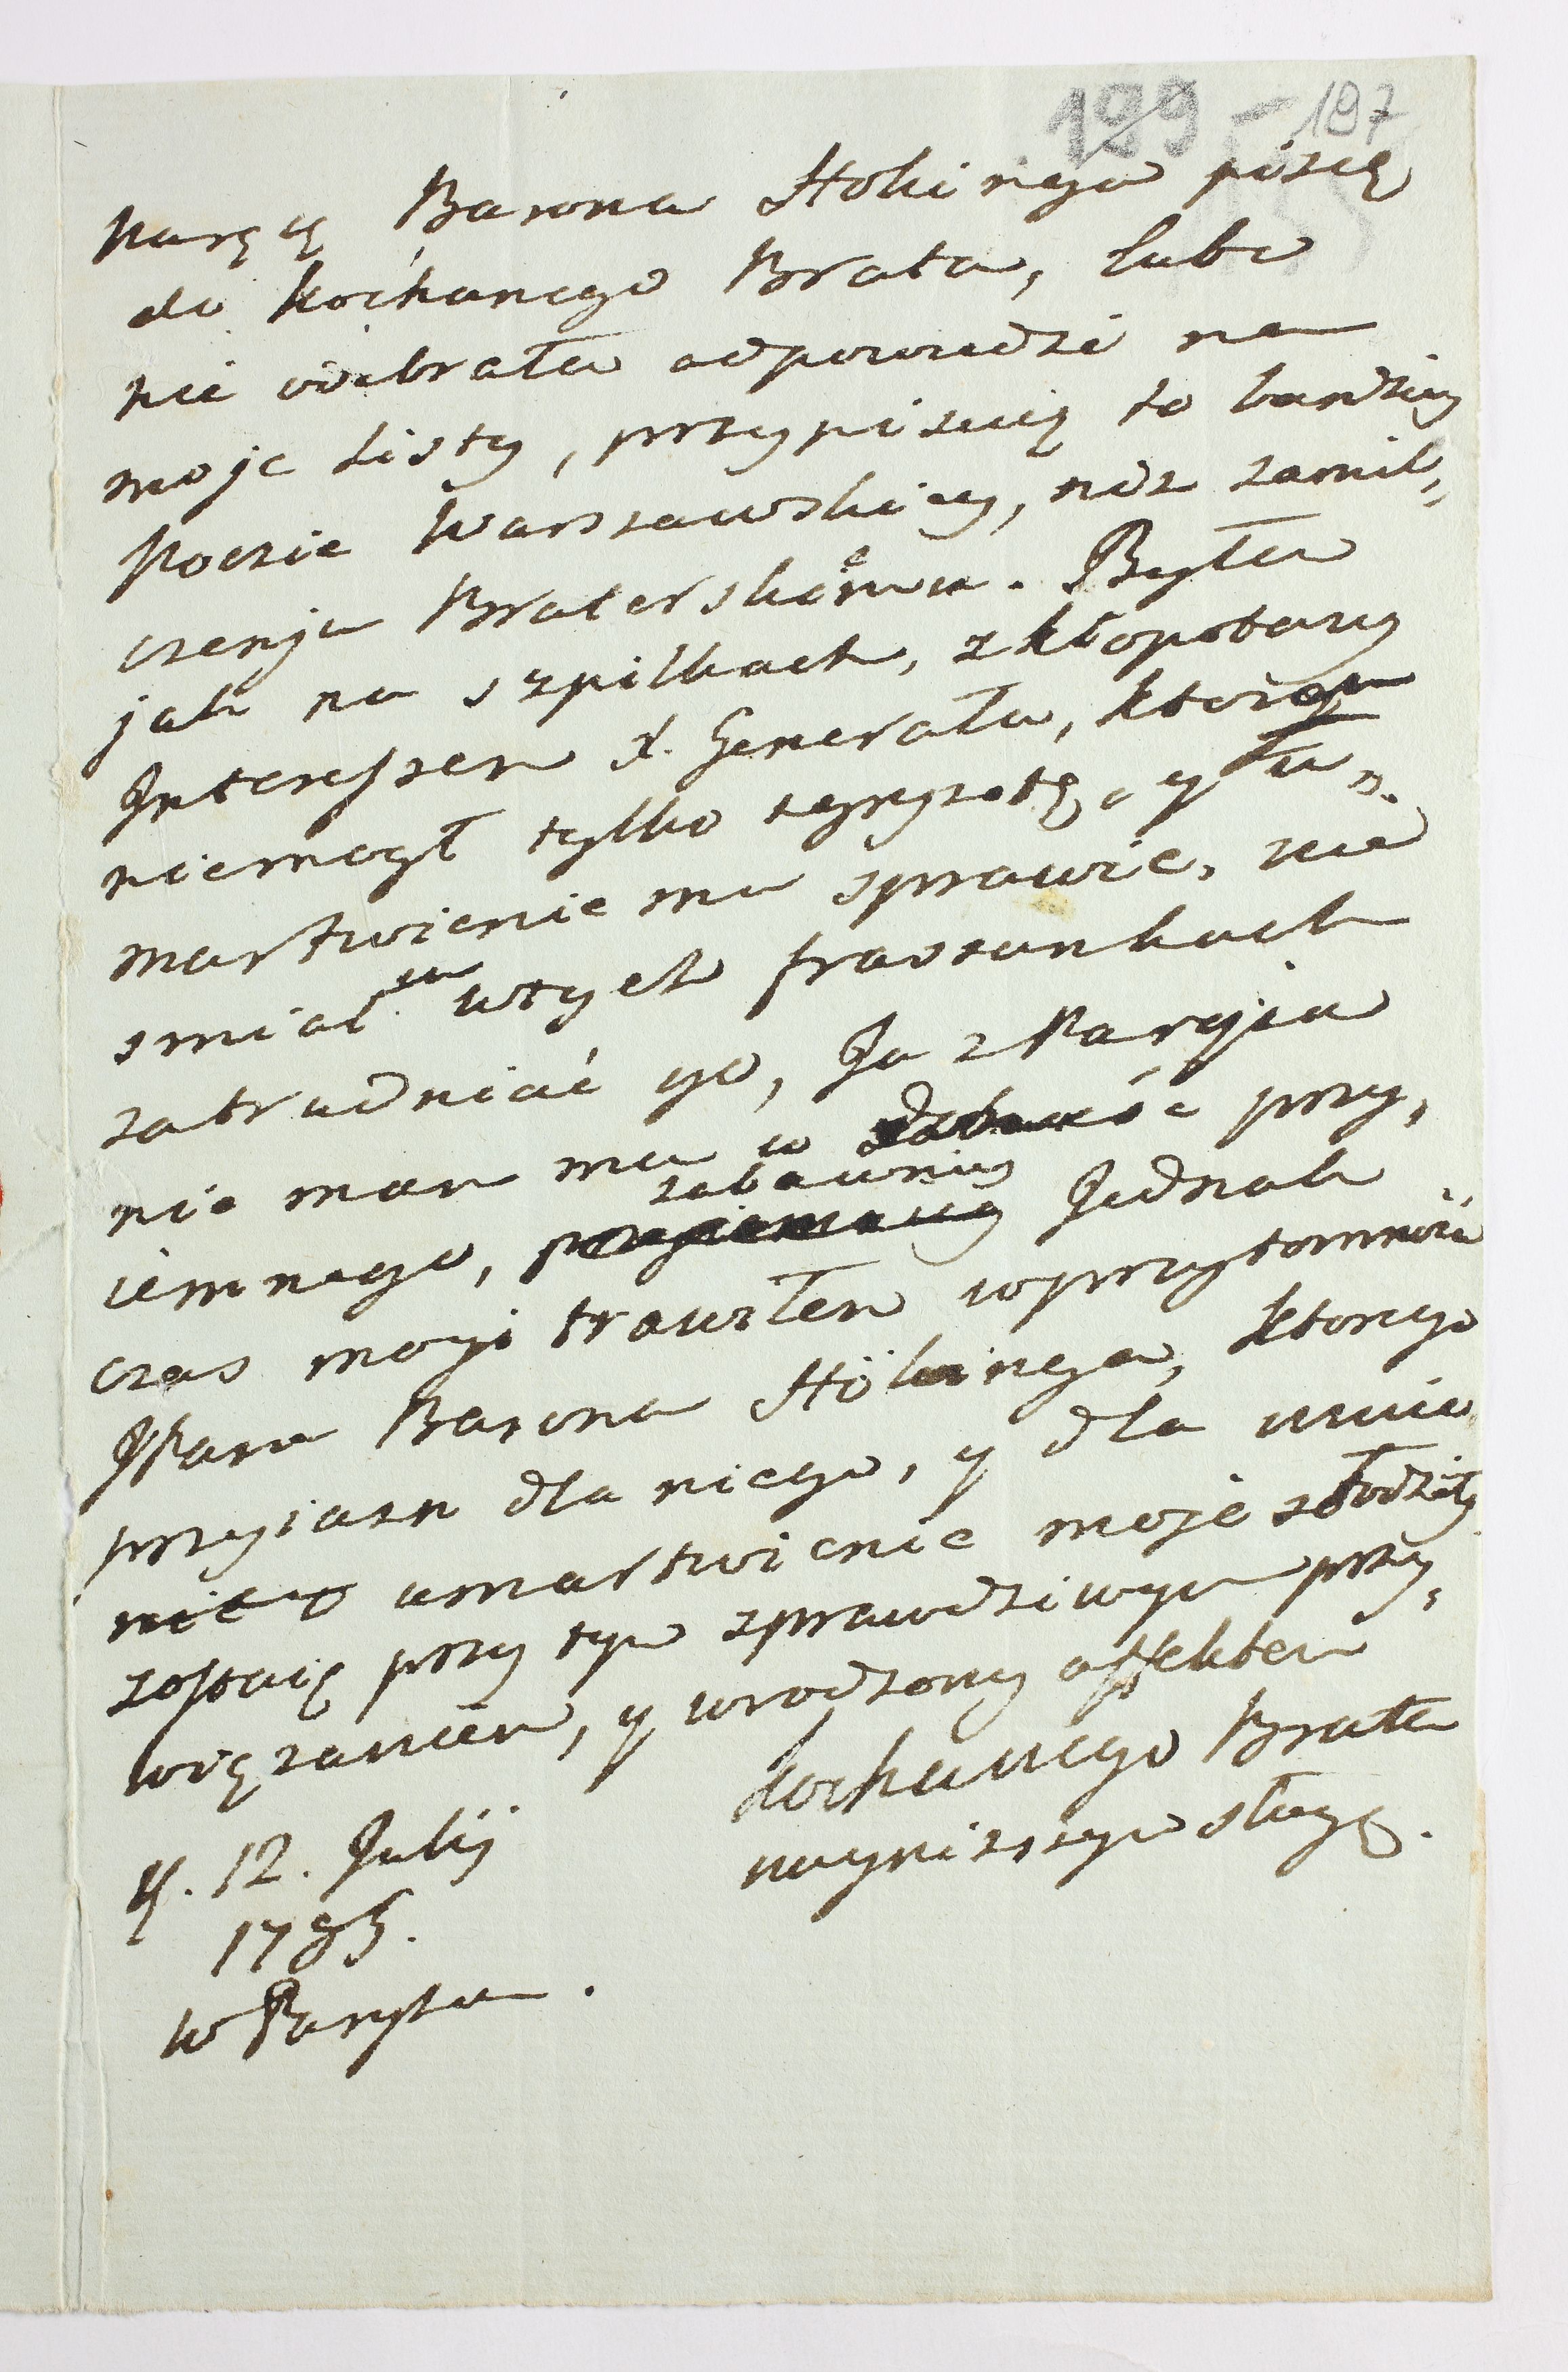 199 - 197
Baron Hokinga piszę
do kochanego Brata, lubo
nie odebrała odpowiedzi na
moje listy, przypisuię to bardziey
Poczcie Warszawskiey, niz zamil,,
czenju Braterskiemu. Byłem
jak na szpilkach, z kłopotany
Interessem X. Generała, ktorem
niemogł tylko zgryzotę, y um,,
martwienie mu sprawic, nie
smiałem wtych frasunkach
zatrudniać go, Ja z Paryża
nie mam mu w przy,
iemnego, zabawniey Jednak
czas moyi trawiłem wprzytomnosci
JPana Barona Hökinga, ktorego
przyiazn dla niego, y dla mnie
umartwienie moje słodziły
zostaię przy tym sprawdziwym przy,
wiązaniem, y wrodzony affektem
kochanego Brata
nayniższym sługą.
d. 12. Julij
1785.
w Paryżu.